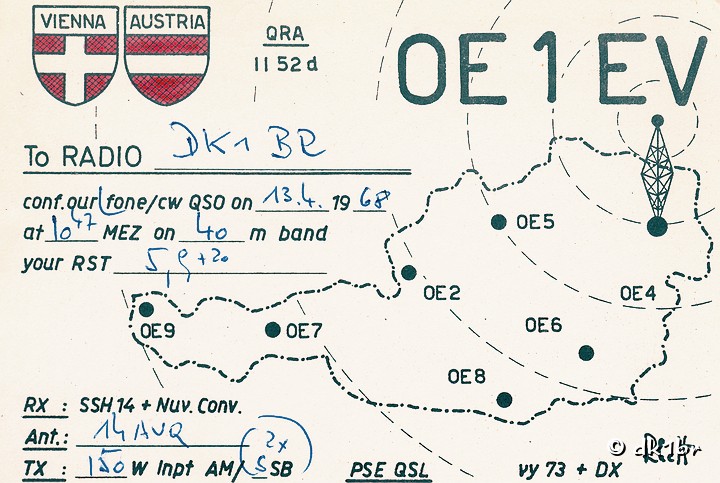 VIENNA AUSTRIA
QRA
II 52 d
OE1EV
To RADIO DK1BR
conf. our fone/cw QSO on 13.4. 1968
at 10 47 MEZ on 40 m band
your RST 5,9 +20
OE5
OE2
OE4
OE9
OE7
OE6
OE8
RX : SSH 14 + Nuv. Conv.
Ant.: 14 AVQ
TX : 150 W Inpt AM/SSB 2x
PSE QSL
vy 73 + DX
© dk1br